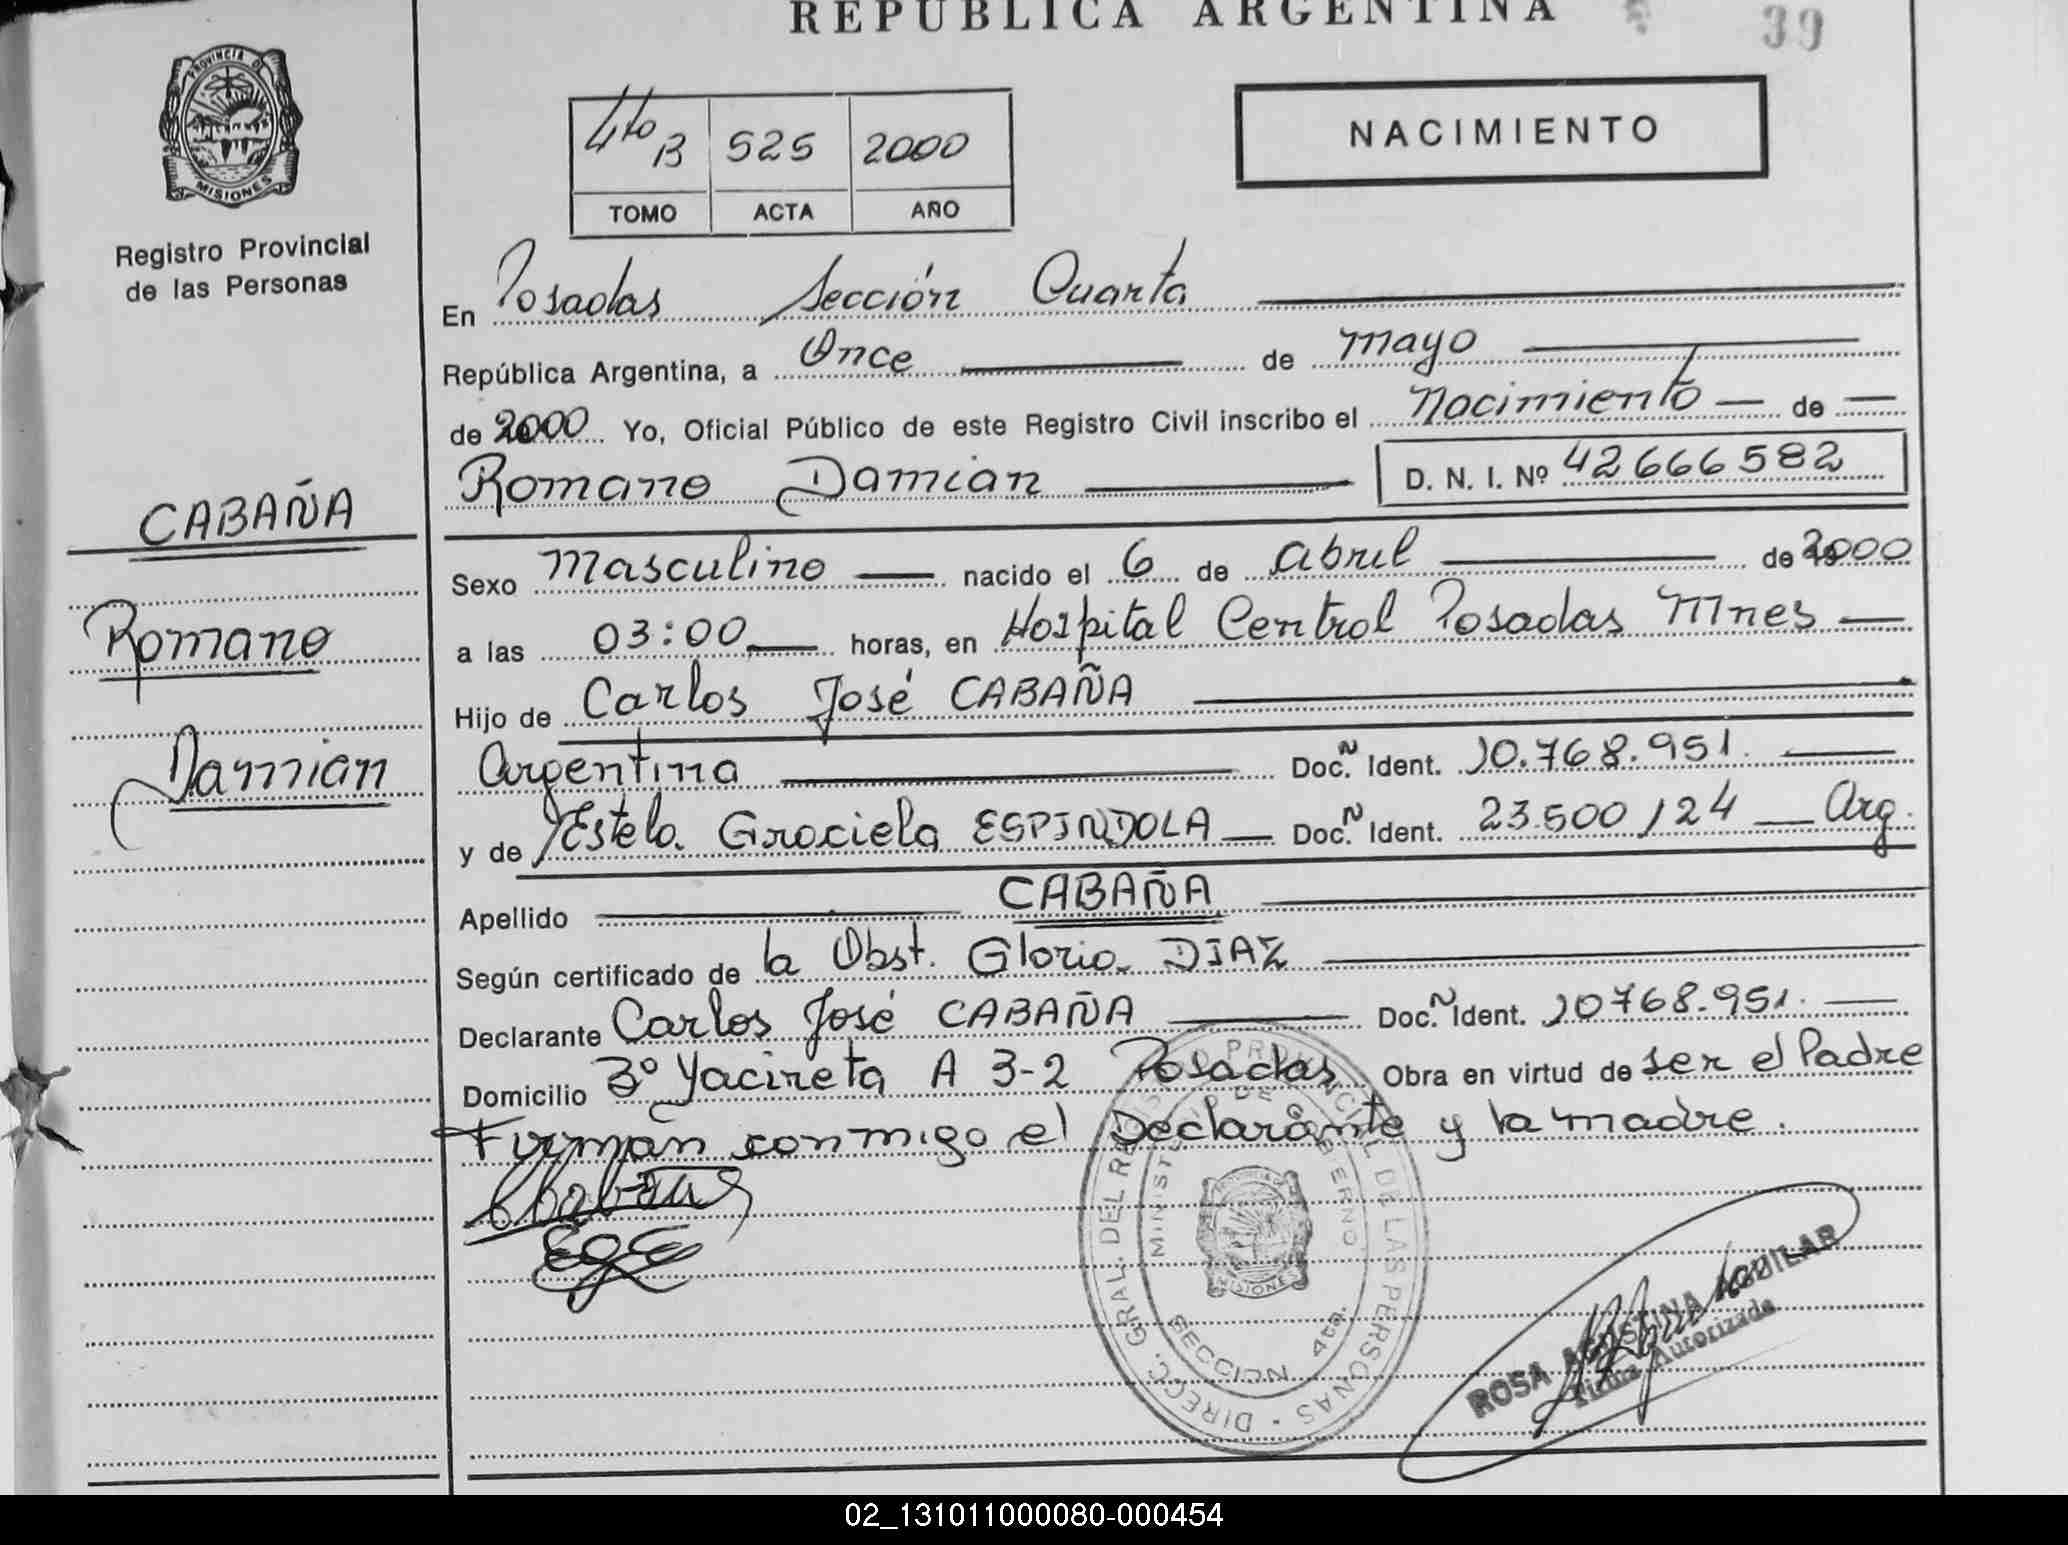 REPUBLICA ARGENTINA
39
PROVINCIA DE
MISIONES
Registro Provincial
de las Personas
4to B 525 2000
TOMO ACTA AÑO
NACIMIENTO
En Posadas Sección Quarta
República Argentina, a Once de mayo
de 2000 Yo, Oficial Público de este Registro Civil inscribo el Nacimiento de
Romano Damian D. N. I. Nº 42666582
CABAÑA
Romano
Damian
Sexo Masculino nacido el 6 de abril de 2000
a las 03:00 horas, en Hospital Central Posadas Mnes
Hijo de Carlos José CABAÑA
Argentina Doc. Ident. 20.768.951.
y de Estela Graciela ESPINDOLA Doc. Ident. 23.500.124 Arg.
Apellido CABAÑA
Según certificado de la Obst. Gloria DIAZ
Declarante Carlos José CABAÑA Doc. Ident. 20768.951.
Domicilio Bº Yacireta A 3-2 Posadas Obra en virtud de ser el Padre
Firman conmigo el Declarante y la madre.
DIRECC. GRAL. DEL REGISTRO PROVINCIAL DE LAS PERSONAS
MINISTERIO DE GOBIERNO
MISIONES
SECCION 4ta.
ROSA AGUSTINA AGUILAR
Firma Autorizada
02_131011000080-000454